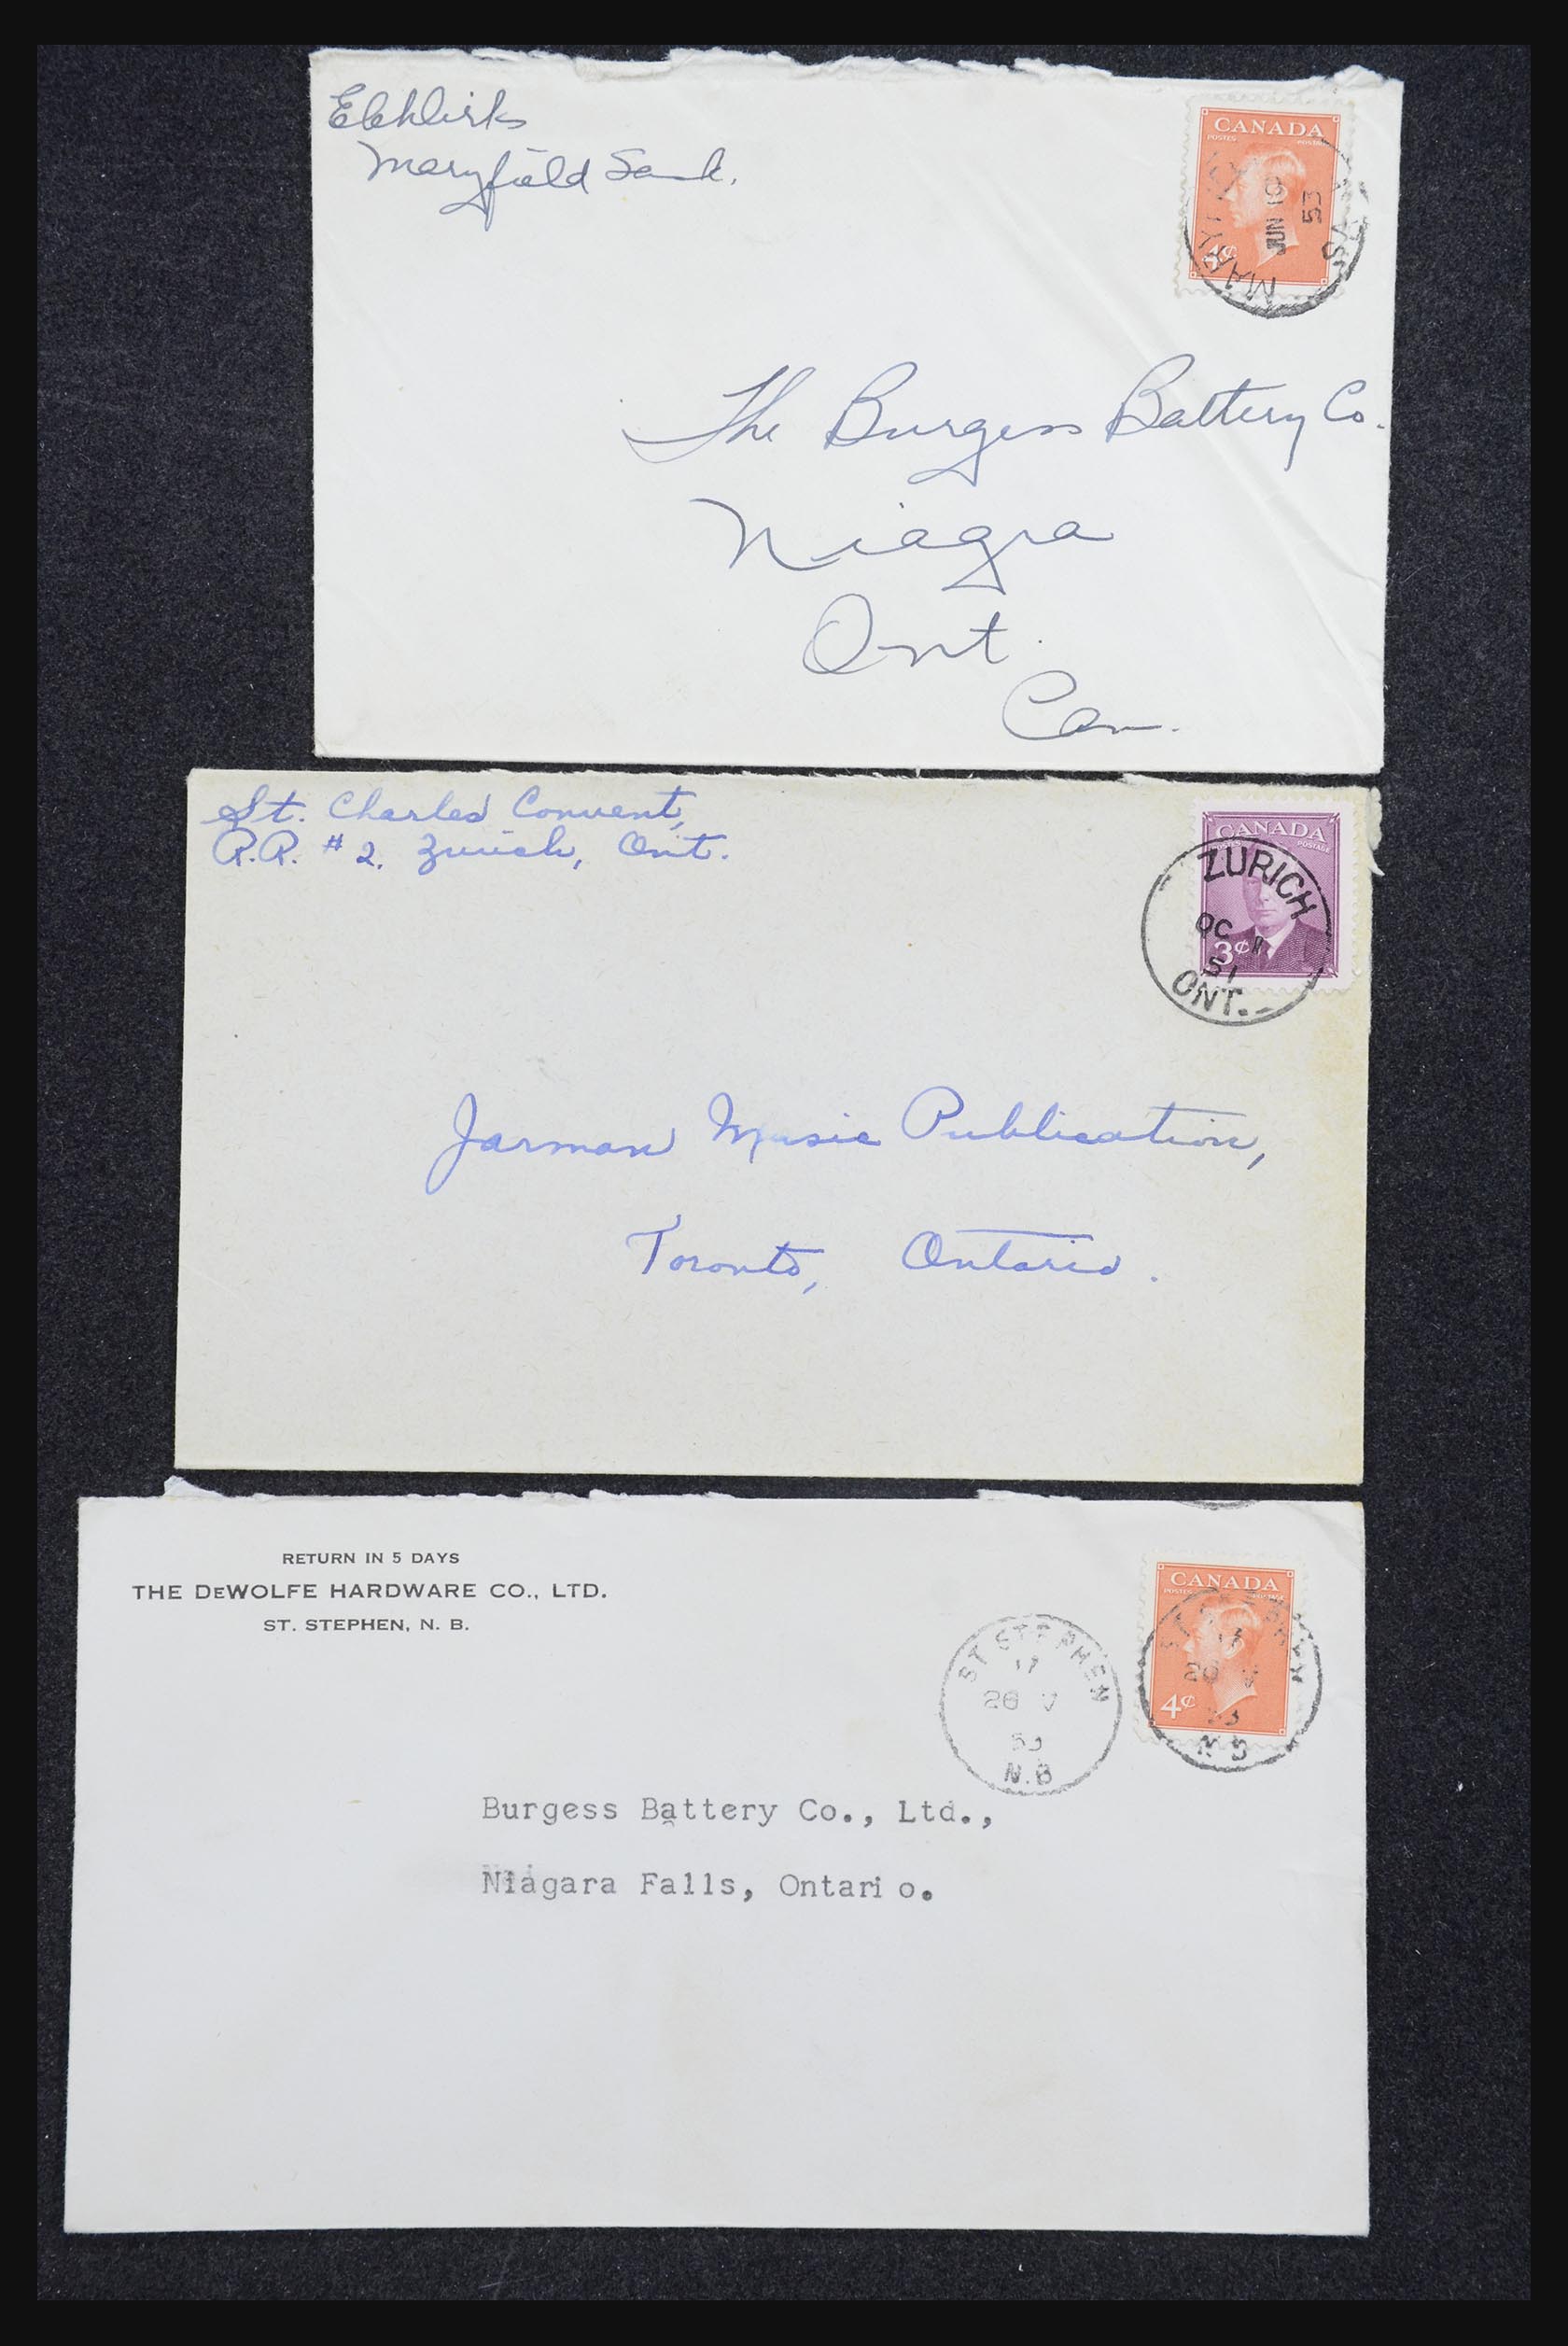 Maryfield Sask.
CANADA
POSTES POSTAGE
4¢
JUN 10
53
The Burgess Battery Co.
Niagra
Ont.
Can.
St. Charles Convent,
R.R. #2, Zurich, Ont.
CANADA
POSTES POSTAGE
3¢
ZURICH
OC 1
51
ONT.
Jarman Music Publication,
Toronto, Ontario.
RETURN IN 5 DAYS
THE DeWOLFE HARDWARE CO., LTD.
ST. STEPHEN, N. B.
CANADA
POSTES POSTAGE
4¢
ST STEPHEN
17
26 V
53
N.B
Burgess Battery Co., Ltd.,
Niagara Falls, Ontario.